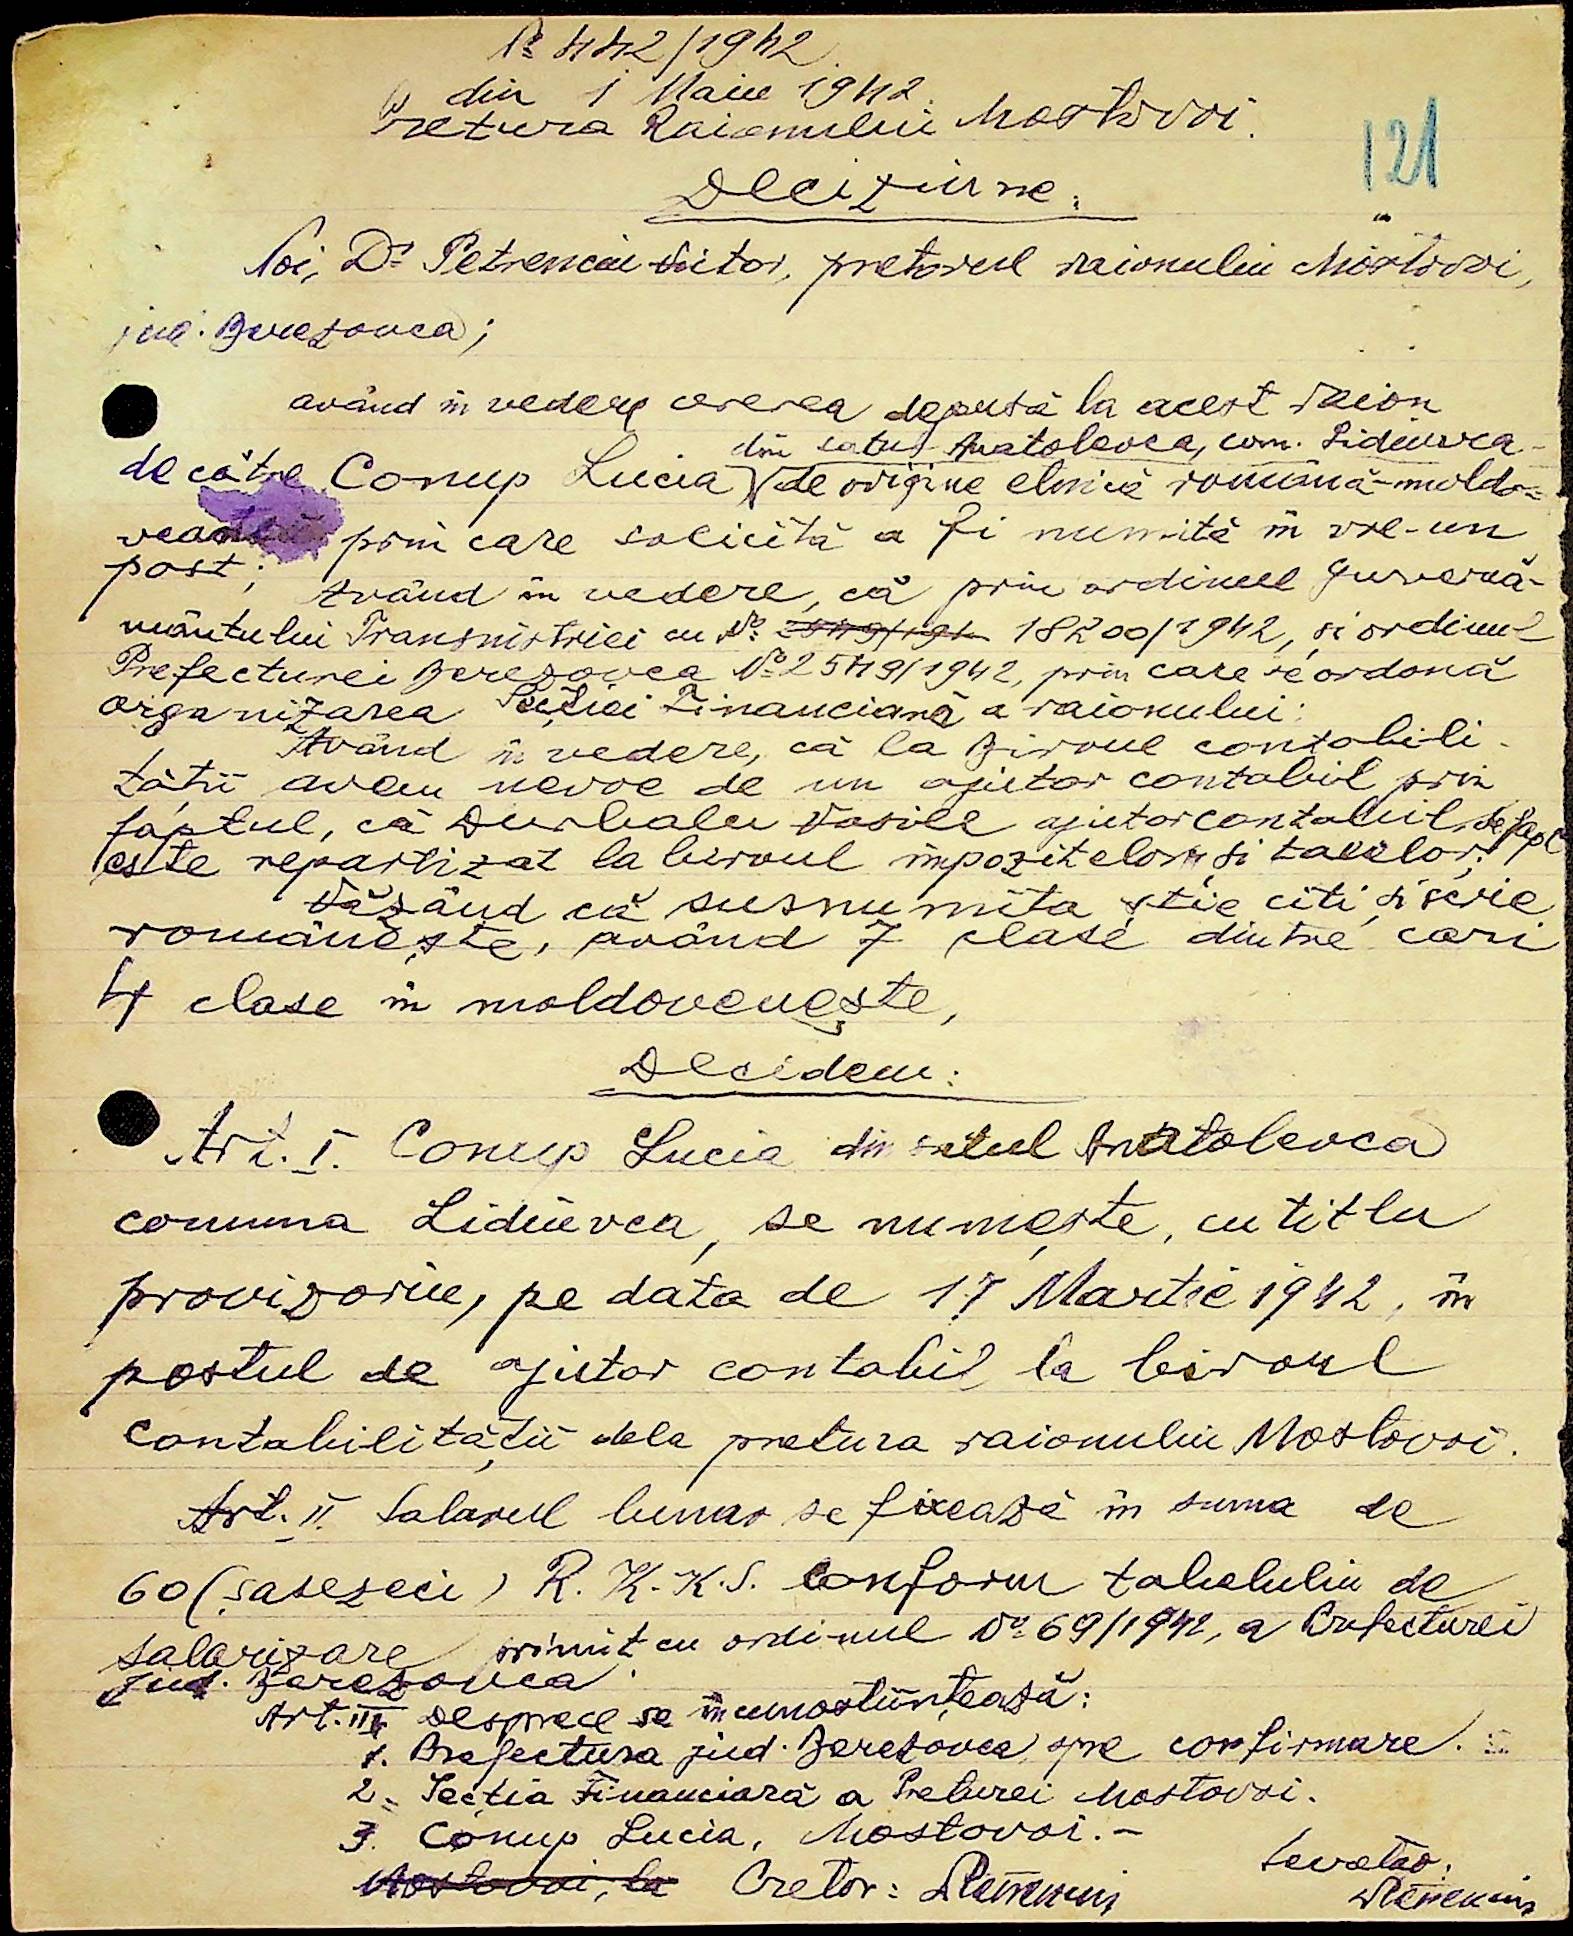 № 442/1942.
din 1 Maiu 1942.
Pretura Raionului Mostovoi.
121
Deciziune.
Noi, Dr Petrenciu Victor, pretorul raionului Mostovoi,
jud. Berezovca;
având în vedere cererea depusă la acest raion
din satul Anatolevca, com. Lidievca
de către Conup Lucia de origine etnică română-moldo-
veană prin care solicită a fi numită în vre-un
post; Având în vedere, că prin ordinul Guvernă-
mântului Transnistriei cu № 2549/194 18200/1942, și ordinul
Prefecturei Berezovca № 2549/1942, prin care se ordonă
organizarea Secției Financiară a raionului;
Având în vedere, că la Biroul contabili-
tății avem nevoe de un ajutor contabil prin
faptul, că Durbalu Vasile ajutor contabil, de fapt
este repartizat la biroul impozitelor și taxelor;
Văzând că susnumita știe citi și scrie
românește, având 7 clase dintre cari
4 clase în moldovenește,
Decidem:
Art. I. Conup Lucia din satul Anatolevca
comuna Lidievca, se numește, cu titlu
provizoriu, pe data de 17 Martie 1942, în
postul de ajutor contabil la biroul
contabilității dela pretura raionului Mostovoi.
Art. II. Salarul lunar se fixează în suma de
60 (șasezeci) R.K.K.S. conform tabelului de
salarizare primit cu ordinul № 69/1942, a Prefecturei
Jud. Berezovca.
Art. III Despre ce se încunoștiințează:
1. Prefectura jud. Berezovca, spre confirmare.
2. Secția Financiară a Preturei Mostovoi.
3. Conup Lucia, Mostovoi.-
Mostovoi, la Pretor: